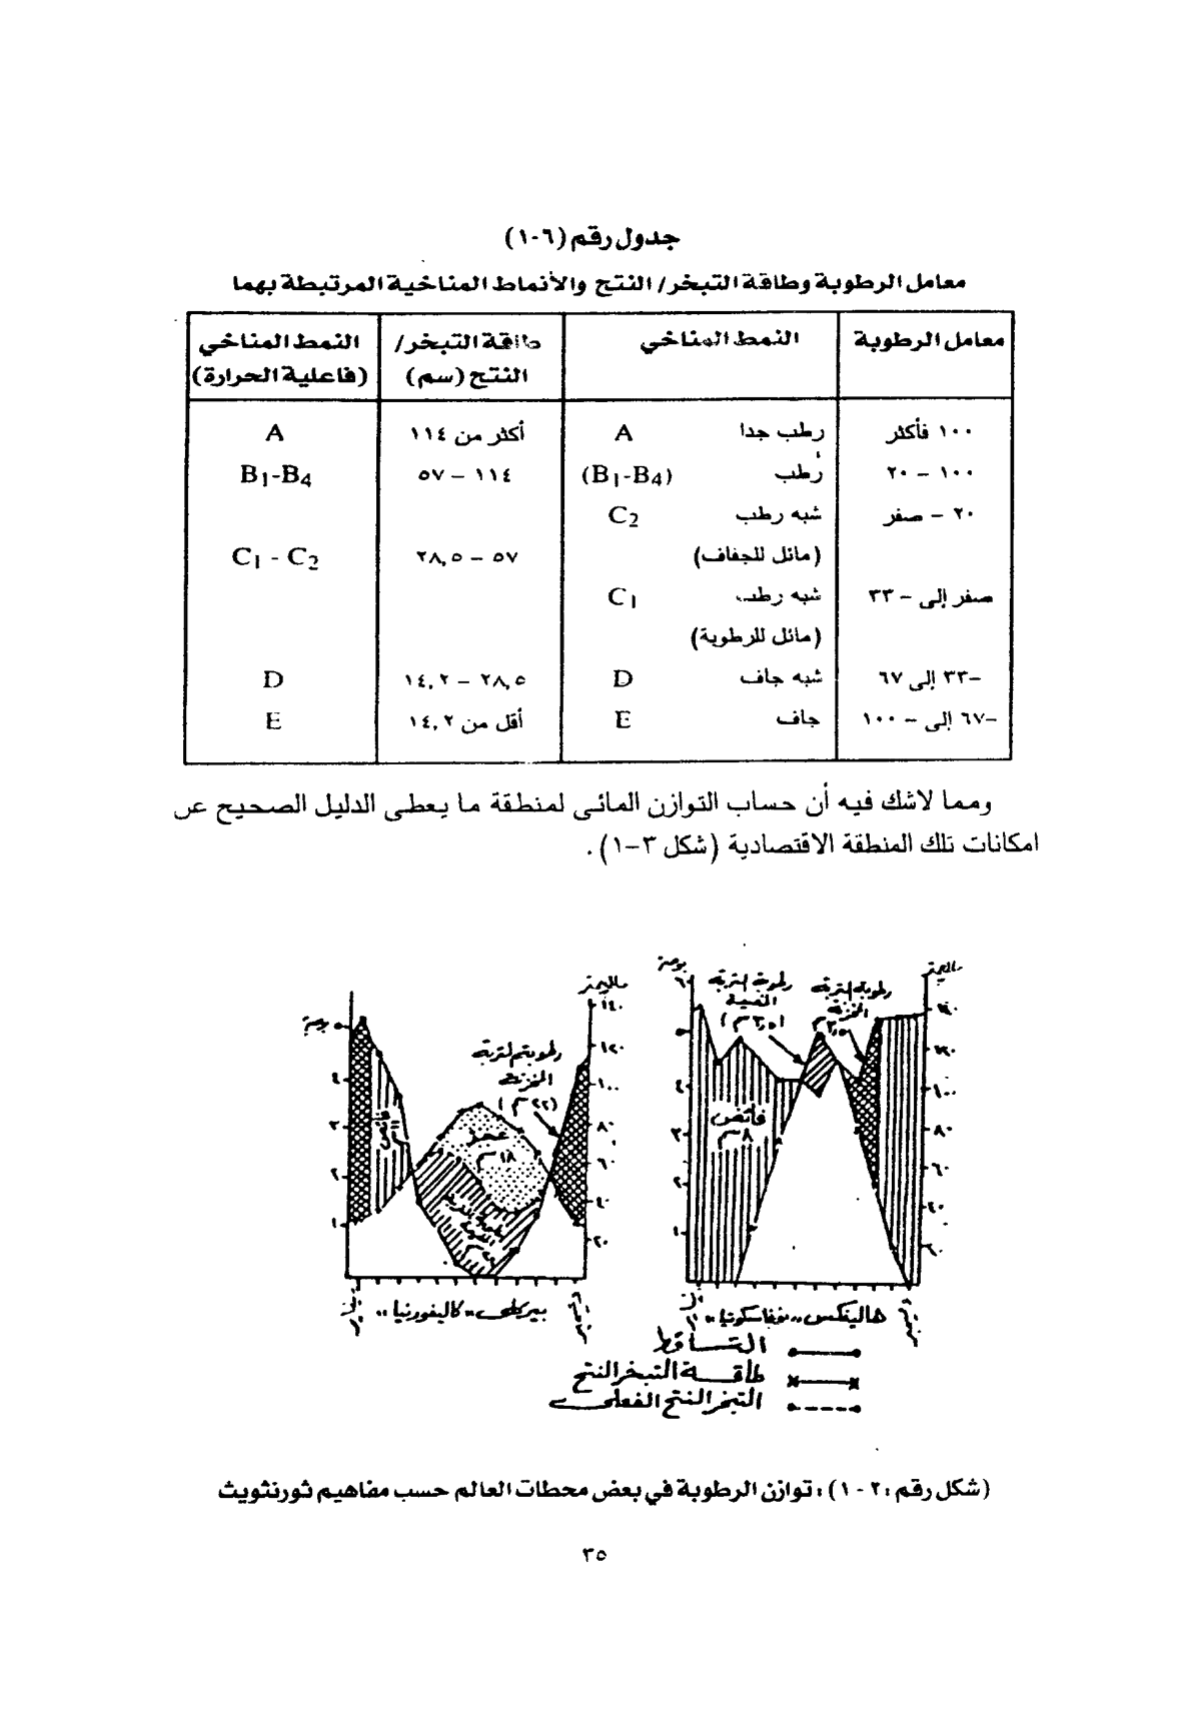 جدول رقم (٦-١)
معامل الرطوبة وطاقة التبخر/ النتح والأنماط المناخية المرتبطة بهما
معامل الرطوبة النمط المناخي طاقة التبخر/ النتح (سم) النمط المناخي (فاعلية الحرارة)
١٠٠ فأكثر رطب جدا A أكثر من ١١٤ A
١٠٠ – ٢٠ رُطب (B1-B4) ١١٤ – ٥٧ B1-B4
٢٠ – صفر شبه رطب C2
(مائل للجفاف) ٥٧ – ٢٨,٥ C1 - C2
صفر إلى – ٣٣ شبه رطب C1
(مائل للرطوبة)
–٣٣ إلى ٦٧ شبه جاف D ٢٨,٥ – ١٤,٢ D
–٦٧ إلى – ١٠٠ جاف E أقل من ١٤,٢ E
ومما لاشك فيه أن حساب التوازن المائى لمنطقة ما يعطى الدليل الصحيح عن
امكانات تلك المنطقة الاقتصادية (شكل ٣–١) .
ماليمتر
بوصة
رطوبة التربة
المخزنة
رطوبة التربة
فائض
٨سم
هاليفكس ,,نوفاسكوتيا,,
ماليمتر
بوصة
رطوبة التربة
المخزنة
عجز
١٨سم
بيركلى ,,كاليفورنيا,,
التساقط
طاقة التبخر النتح
التبخر النتح الفعلى
(شكل رقم :٢ - ١) : توازن الرطوبة في بعض محطات العالم حسب مفاهيم ثورنثويث
٣٥